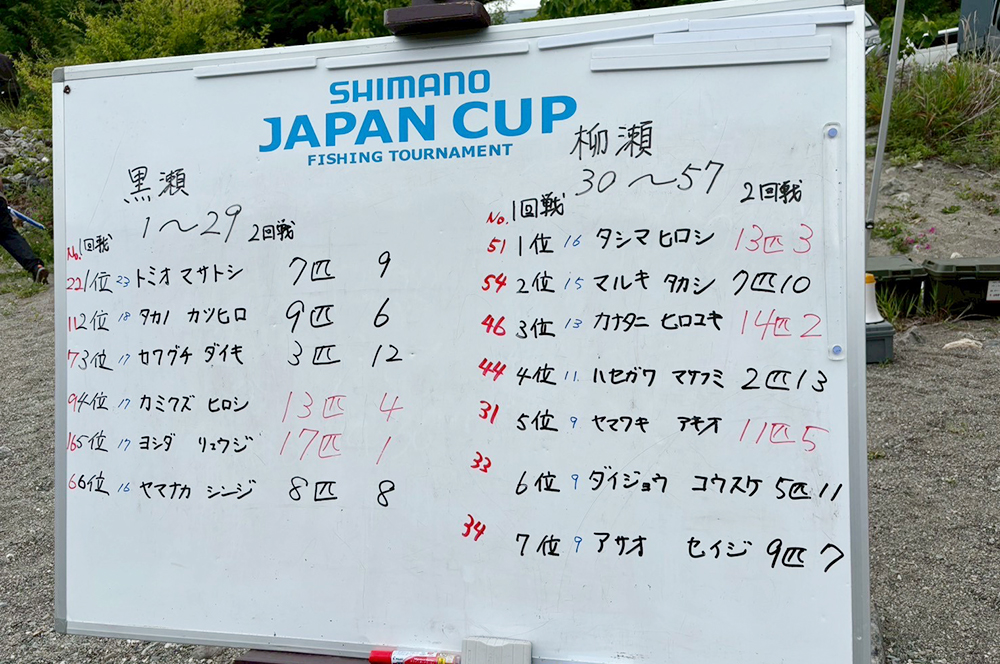 SHIMANO
JAPAN CUP
FISHING TOURNAMENT
黒瀬
1～29
No. 1回戦 2回戦
22 1位 23 トミオ マサトシ 7匹 9
11 2位 18 タカノ カツヒロ 9匹 6
7 3位 17 カワグチ ダイキ 3匹 12
9 4位 17 カミクズ ヒロシ 13匹 4
16 5位 17 ヨシダ リュウジ 17匹 1
6 6位 16 ヤマナカ シンジ 8匹 8
柳瀬
30～57
No. 1回戦 2回戦
51 1位 16 タシマ ヒロシ 13匹 3
54 2位 15 マルキ タカシ 7匹 10
46 3位 13 カナタニ ヒロユキ 14匹 2
44 4位 11 ハセガワ マサフミ 2匹 13
31 5位 9 ヤマワキ アキオ 11匹 5
33 6位 9 ダイジョウ コウスケ 5匹 11
34 7位 9 アサオ セイジ 9匹 7